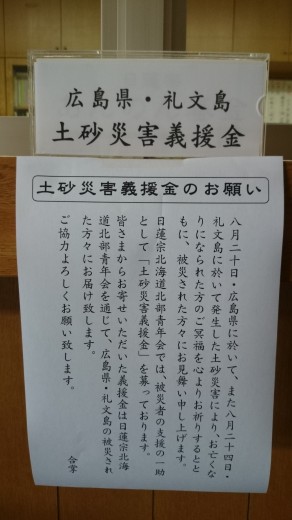 広島県・礼文島
土砂災害義援金
土砂災害義援金のお願い
八月二十日・広島県に於いて、また八月二十四日・
礼文島に於いて発生した土砂災害により、お亡くな
りになられた方のご冥福を心よりお祈りするとと
もに、被災された方々にお見舞い申し上げます。
日蓮宗北海道北部青年会では、被災者の支援の一助
として「土砂災害義援金」を募っております。
皆さまからお寄せいただいた義援金は日蓮宗北海
道北部青年会を通じて、広島県・礼文島の被災され
た方々にお届け致します。
ご協力よろしくお願い致します。
合掌